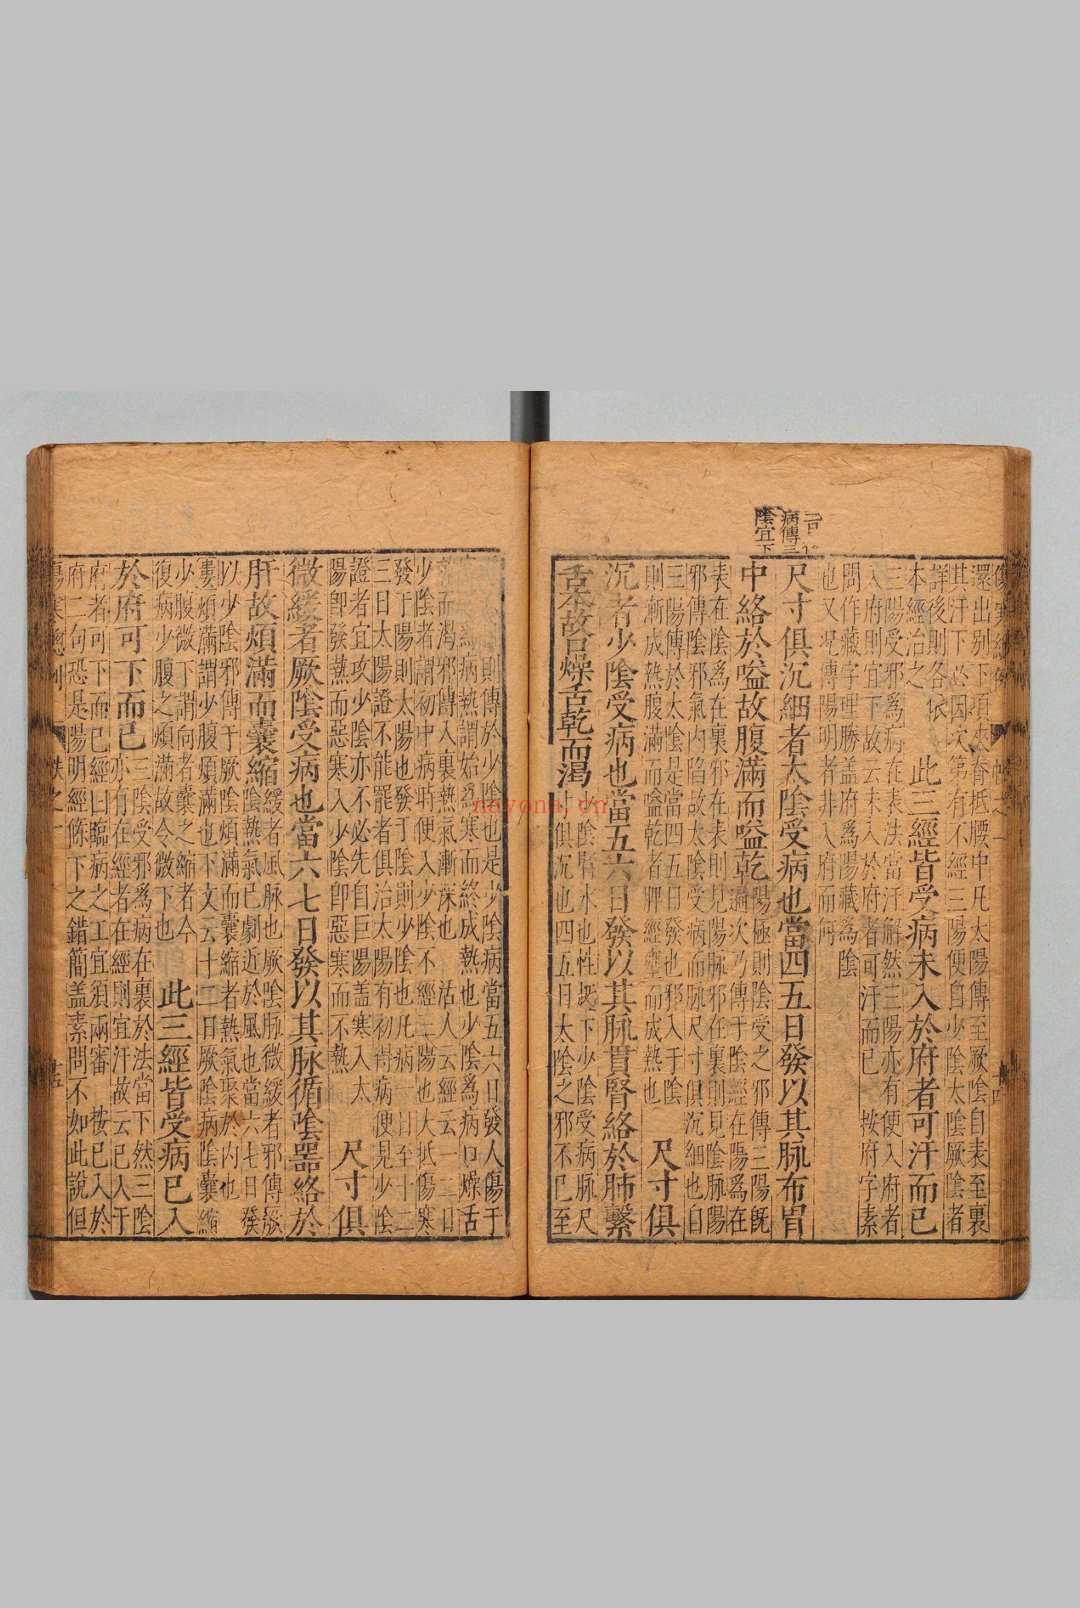 病傳三
陰宜下
還出别下項夾脊抵腰中凡太陽傳至厥陰自表至裏
其汗下必因次第有不經三陽便自少陰太陰厥陰者
詳後則各依
本經治之
此三經皆受病未入於府者可汗而已
三陽受邪爲病在表法當汗解然三陽亦有便入府者
入府則宜下故云未入於府者可汗而已 按府字素
問作藏字理勝盖府爲陽藏爲陰
也又况傳陽明者非入府而何
尺寸俱沉細者太陰受病也當四五日發以其脉布胃
中絡於嗌故腹滿而嗌乾
陽極則陰受之邪傳三陽既
遍次乃傳于陰經在陽爲在
表在陰爲在裏邪在表則見陽脉邪在裏則見陰脉陽
邪傳陰邪氣内陷故太陰受病而脉尺寸俱沉細也自
三陽傳於太陰是當四五日發也邪入于陰
則漸成熱腹滿而嗌乾者脾經壅而成熱也
尺寸俱
沉者少陰受病也當五六日發以其脉貫腎絡於肺繫
舌本故口燥舌乾而渴
少陰腎水也性趣下少陰受病脉尺
寸俱沉也四五日太陰之邪不已至
則傳於少陰也是少陰病當五六日發人傷于
寒則爲病熱謂始爲寒而終成熱也少陰爲病口燥舌
乾而渴邪傳入裏熱氣漸深也 活人云經云一二日
少陰者謂初中病時便入少陰不經三陽也大抵傷寒
發于陽則太陽也發于陰則少陰也凡病一日至十二
三日太陽證不能罷者俱治太陽有初得病便見少陰
證者宜攻少陰亦不必先自巨陽盖寒入太
陽即發熱而惡寒入少陰即惡寒而不熱
尺寸俱
微緩者厥陰受病也當六七日發以其脉循陰器絡於
肝故煩滿而囊縮
緩者風脉也厥陰脉微緩者邪傳厥
陰熱氣已劇近於風也當六七日發
以少陰邪傳于厥陰煩滿而囊縮者熱氣聚於内也
婁煩滿謂少腹煩滿也下文云十二日厥陰病陰囊縮
少腹微下謂向者囊之縮者今
復病少腹之煩滿故令微下也
此三經皆受病已入
於府可下而已
三陰受邪爲病在裏於法當下然三陰
亦有在經者在經則宜汗故云已入于
府者可下而已經曰臨病之工宜須兩審 按已入於
府二句恐是陽明經條下之錯簡盖素問不如此說但